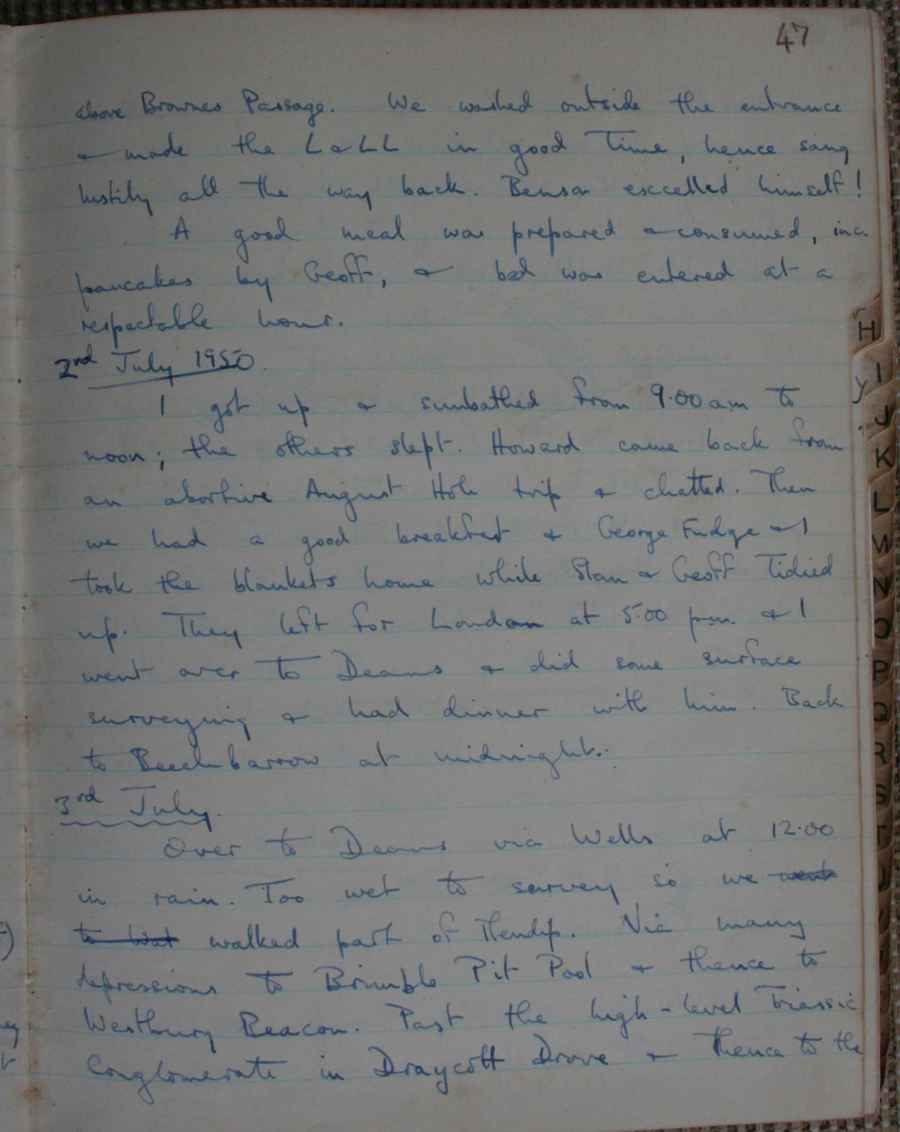 47
above Brownes Passage. We washed outside the entrance
& made the L & LL in good time, hence sang
lustily all the way back. Benson excelled himself!
A good meal was prepared & consumed, inc.
pancakes by Geoff, & bed was entered at a
respectable hour.
2nd July 1950
I got up & sunbathed from 9.00 am to
noon; the others slept. Howard came back from
an abortive August Hole trip & chatted. Then
we had a good breakfast & George Fudge & I
took the blankets home while Stan & Geoff tidied
up. They left for London at 5.00 pm. & I
went over to Deans & did some surface
surveying & had dinner with him. Back
to Beechbarrow at midnight.
3rd July.
Over to Deans via Wells at 12.00
in rain. Too wet to survey so we went
to walked part of Mendip. Via many
depressions to Brimble Pit Pool & thence to
Westbury Beacon. Past the high-level Triassic
Conglomerate in Draycott Drove & thence to the
H
I
J
K
L
M
N
O
P
Q
R
S
T
y